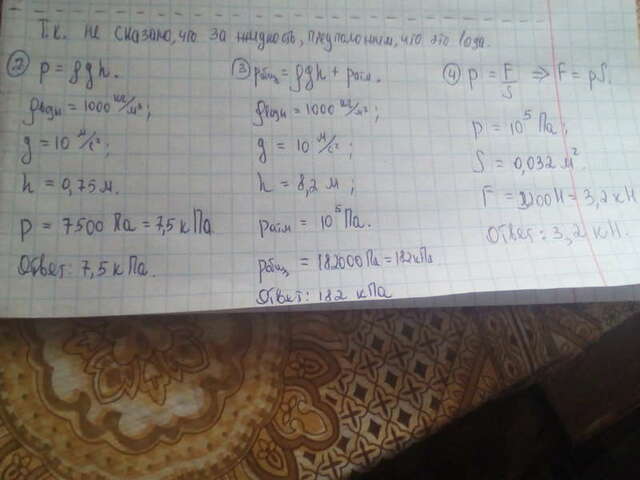 Т.к. не сказано, что за жидкость, предположим, что это вода.
② p = ρgh.
ρводы = 1000 кг/м³;
g = 10 м/с²;
h = 0,75 м.
p = 7500 Па = 7,5 кПа.
Ответ: 7,5 кПа.
③ pобщ = ρgh + pатм.
ρводы = 1000 кг/м³;
g = 10 м/с²;
h = 8,2 м;
pатм = 10⁵ Па.
pобщ = 182000 Па = 182 кПа
Ответ: 182 кПа
④ p = F/S ⇒ F = pS.
p = 10⁵ Па;
S = 0,032 м².
F = 3200 Н = 3,2 кН
Ответ: 3,2 кН.